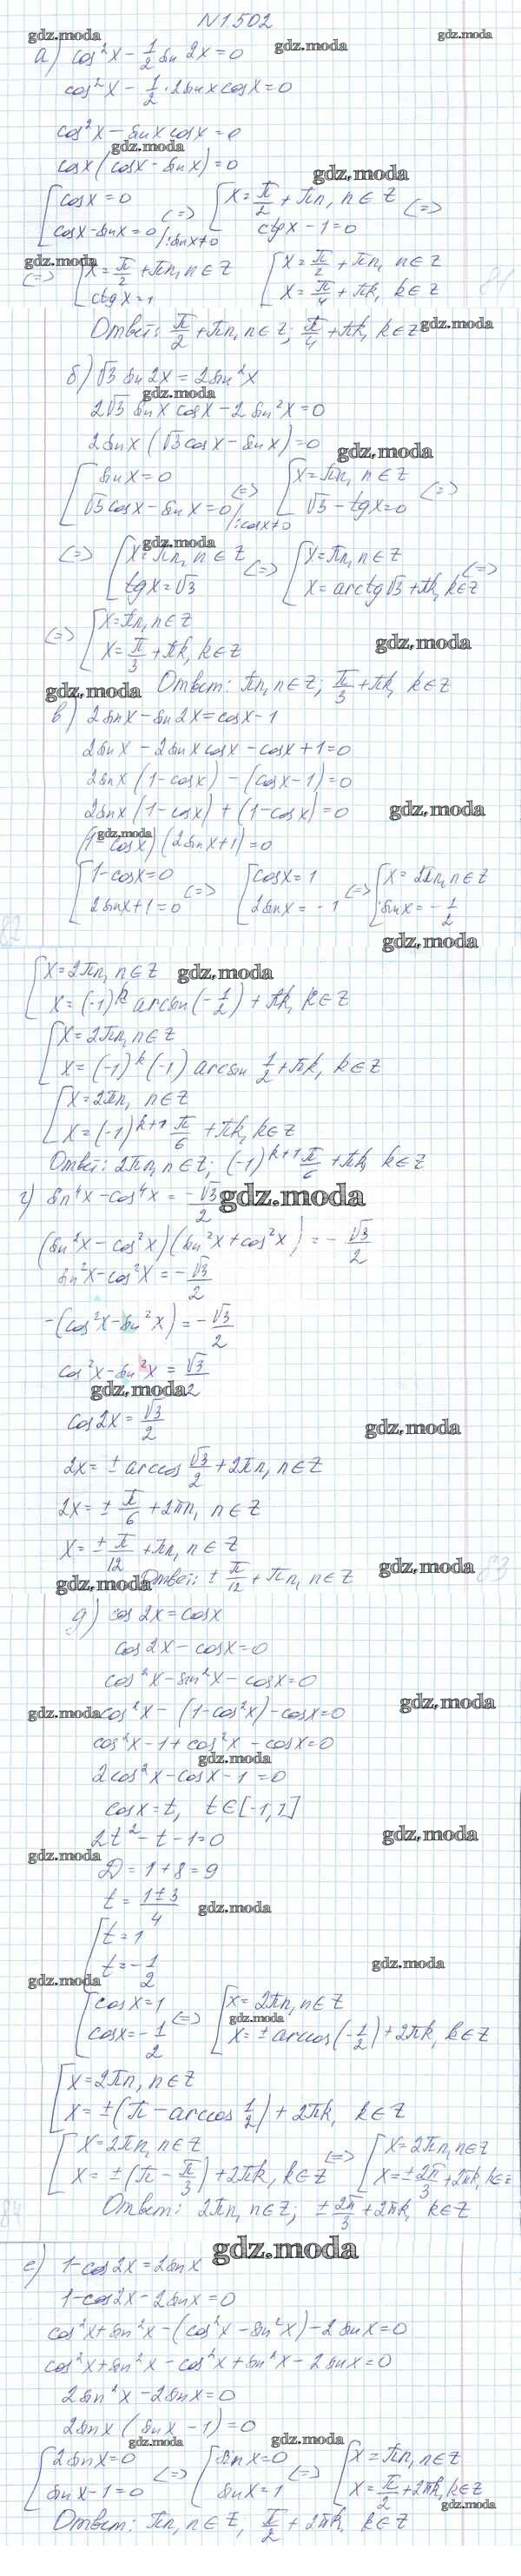 N1502
gdz.moda
gdz.moda
gdz.moda
а) cos²x - 1/2 sin 2x = 0
cos²x - 1/2 · 2sinx cosx = 0
cos²x - sinx cosx = 0
gdz.moda
cosx (cosx - sinx) = 0
gdz.moda
[ cosx = 0 ; cosx - sinx = 0 |: sinx≠0 <=> [ x = π/2 + πn, n∈Z ; ctgx - 1 = 0 <=>
gdz.moda
<=> [ x = π/2 + πn, n∈Z ; ctgx = 1 [ x = π/2 + πn, n∈Z ; x = π/4 + πk, k∈Z
81
Ответ: π/2 + πn, n∈Z; π/4 + πk, k∈Z
gdz.moda
б) √3 sin 2x = 2sin²x
gdz.moda
2√3 sinx cosx - 2sin²x = 0
2sinx (√3cosx - sinx) = 0
gdz.moda
[ sinx = 0 ; √3cosx - sinx = 0 |: cosx≠0 <=> [ x = πn, n∈Z ; √3 - tgx = 0 <=>
gdz.moda
<=> [ x = πn, n∈Z ; tgx = √3 <=> [ x = πn, n∈Z ; x = arctg√3 + πk, k∈Z <=>
<=> [ x = πn, n∈Z ; x = π/3 + πk, k∈Z
gdz.moda
Ответ: πn, n∈Z; π/3 + πk, k∈Z
gdz.moda
в) 2sinx - sin2x = cosx - 1
2sinx - 2sinx cosx - cosx + 1 = 0
2sinx (1 - cosx) - (cosx - 1) = 0
2sinx (1 - cosx) + (1 - cosx) = 0
gdz.moda
gdz.moda
(1 - cosx)(2sinx + 1) = 0
[ 1 - cosx = 0 ; 2sinx + 1 = 0 <=> [ cosx = 1 ; 2sinx = -1 <=> [ x = 2πn, n∈Z ; sinx = -1/2
82
gdz.moda
[ x = 2πn, n∈Z ; x = (-1)^k arcsin(-1/2) + πk, k∈Z
gdz.moda
[ x = 2πn, n∈Z ; x = (-1)^k (-1) arcsin 1/2 + πk, k∈Z
[ x = 2πn, n∈Z ; x = (-1)^(k+1) π/6 + πk, k∈Z
Ответ: 2πn, n∈Z; (-1)^(k+1) π/6 + πk, k∈Z
г) sin⁴x - cos⁴x = -√3/2
gdz.moda
(sin²x - cos²x)(sin²x + cos²x) = -√3/2
sin²x - cos²x = -√3/2
-(cos²x - sin²x) = -√3/2
cos²x - sin²x = √3/2
gdz.moda
cos2x = √3/2
gdz.moda
2x = ± arccos √3/2 + 2πn, n∈Z
2x = ± π/6 + 2πn, n∈Z
x = ± π/12 + πn, n∈Z
gdz.moda
83
gdz.moda
Ответ: ± π/12 + πn, n∈Z
д) cos 2x = cosx
cos2x - cosx = 0
cos²x - sin²x - cosx = 0
gdz.moda
gdz.moda
cos²x - (1 - cos²x) - cosx = 0
cos²x - 1 + cos²x - cosx = 0
gdz.moda
2cos²x - cosx - 1 = 0
cosx = t, t∈[-1,1]
gdz.moda
2t² - t - 1 = 0
gdz.moda
D = 1 + 8 = 9
t = (1±3)/4
gdz.moda
[ t = 1 ; t = -1/2
gdz.moda
gdz.moda
[ cosx = 1 ; cosx = -1/2 <=> [ x = 2πn, n∈Z ; x = ± arccos(-1/2) + 2πk, k∈Z
gdz.moda
[ x = 2πn, n∈Z ; x = ±(π - arccos 1/2) + 2πk, k∈Z
[ x = 2πn, n∈Z ; x = ±(π - π/3) + 2πk, k∈Z <=> [ x = 2πn, n∈Z ; x = ± 2π/3 + 2πk, k∈Z
84
Ответ: 2πn, n∈Z; ± 2π/3 + 2πk, k∈Z
gdz.moda
е) 1 - cos2x = 2sinx
1 - cos2x - 2sinx = 0
cos²x + sin²x - (cos²x - sin²x) - 2sinx = 0
cos²x + sin²x - cos²x + sin²x - 2sinx = 0
2sin²x - 2sinx = 0
2sinx (sinx - 1) = 0
gdz.moda
gdz.moda
[ 2sinx = 0 ; sinx - 1 = 0 <=> [ sinx = 0 ; sinx = 1 <=> [ x = πn, n∈Z ; x = π/2 + 2πk, k∈Z
gdz.moda
Ответ: πn, n∈Z, π/2 + 2πk, k∈Z